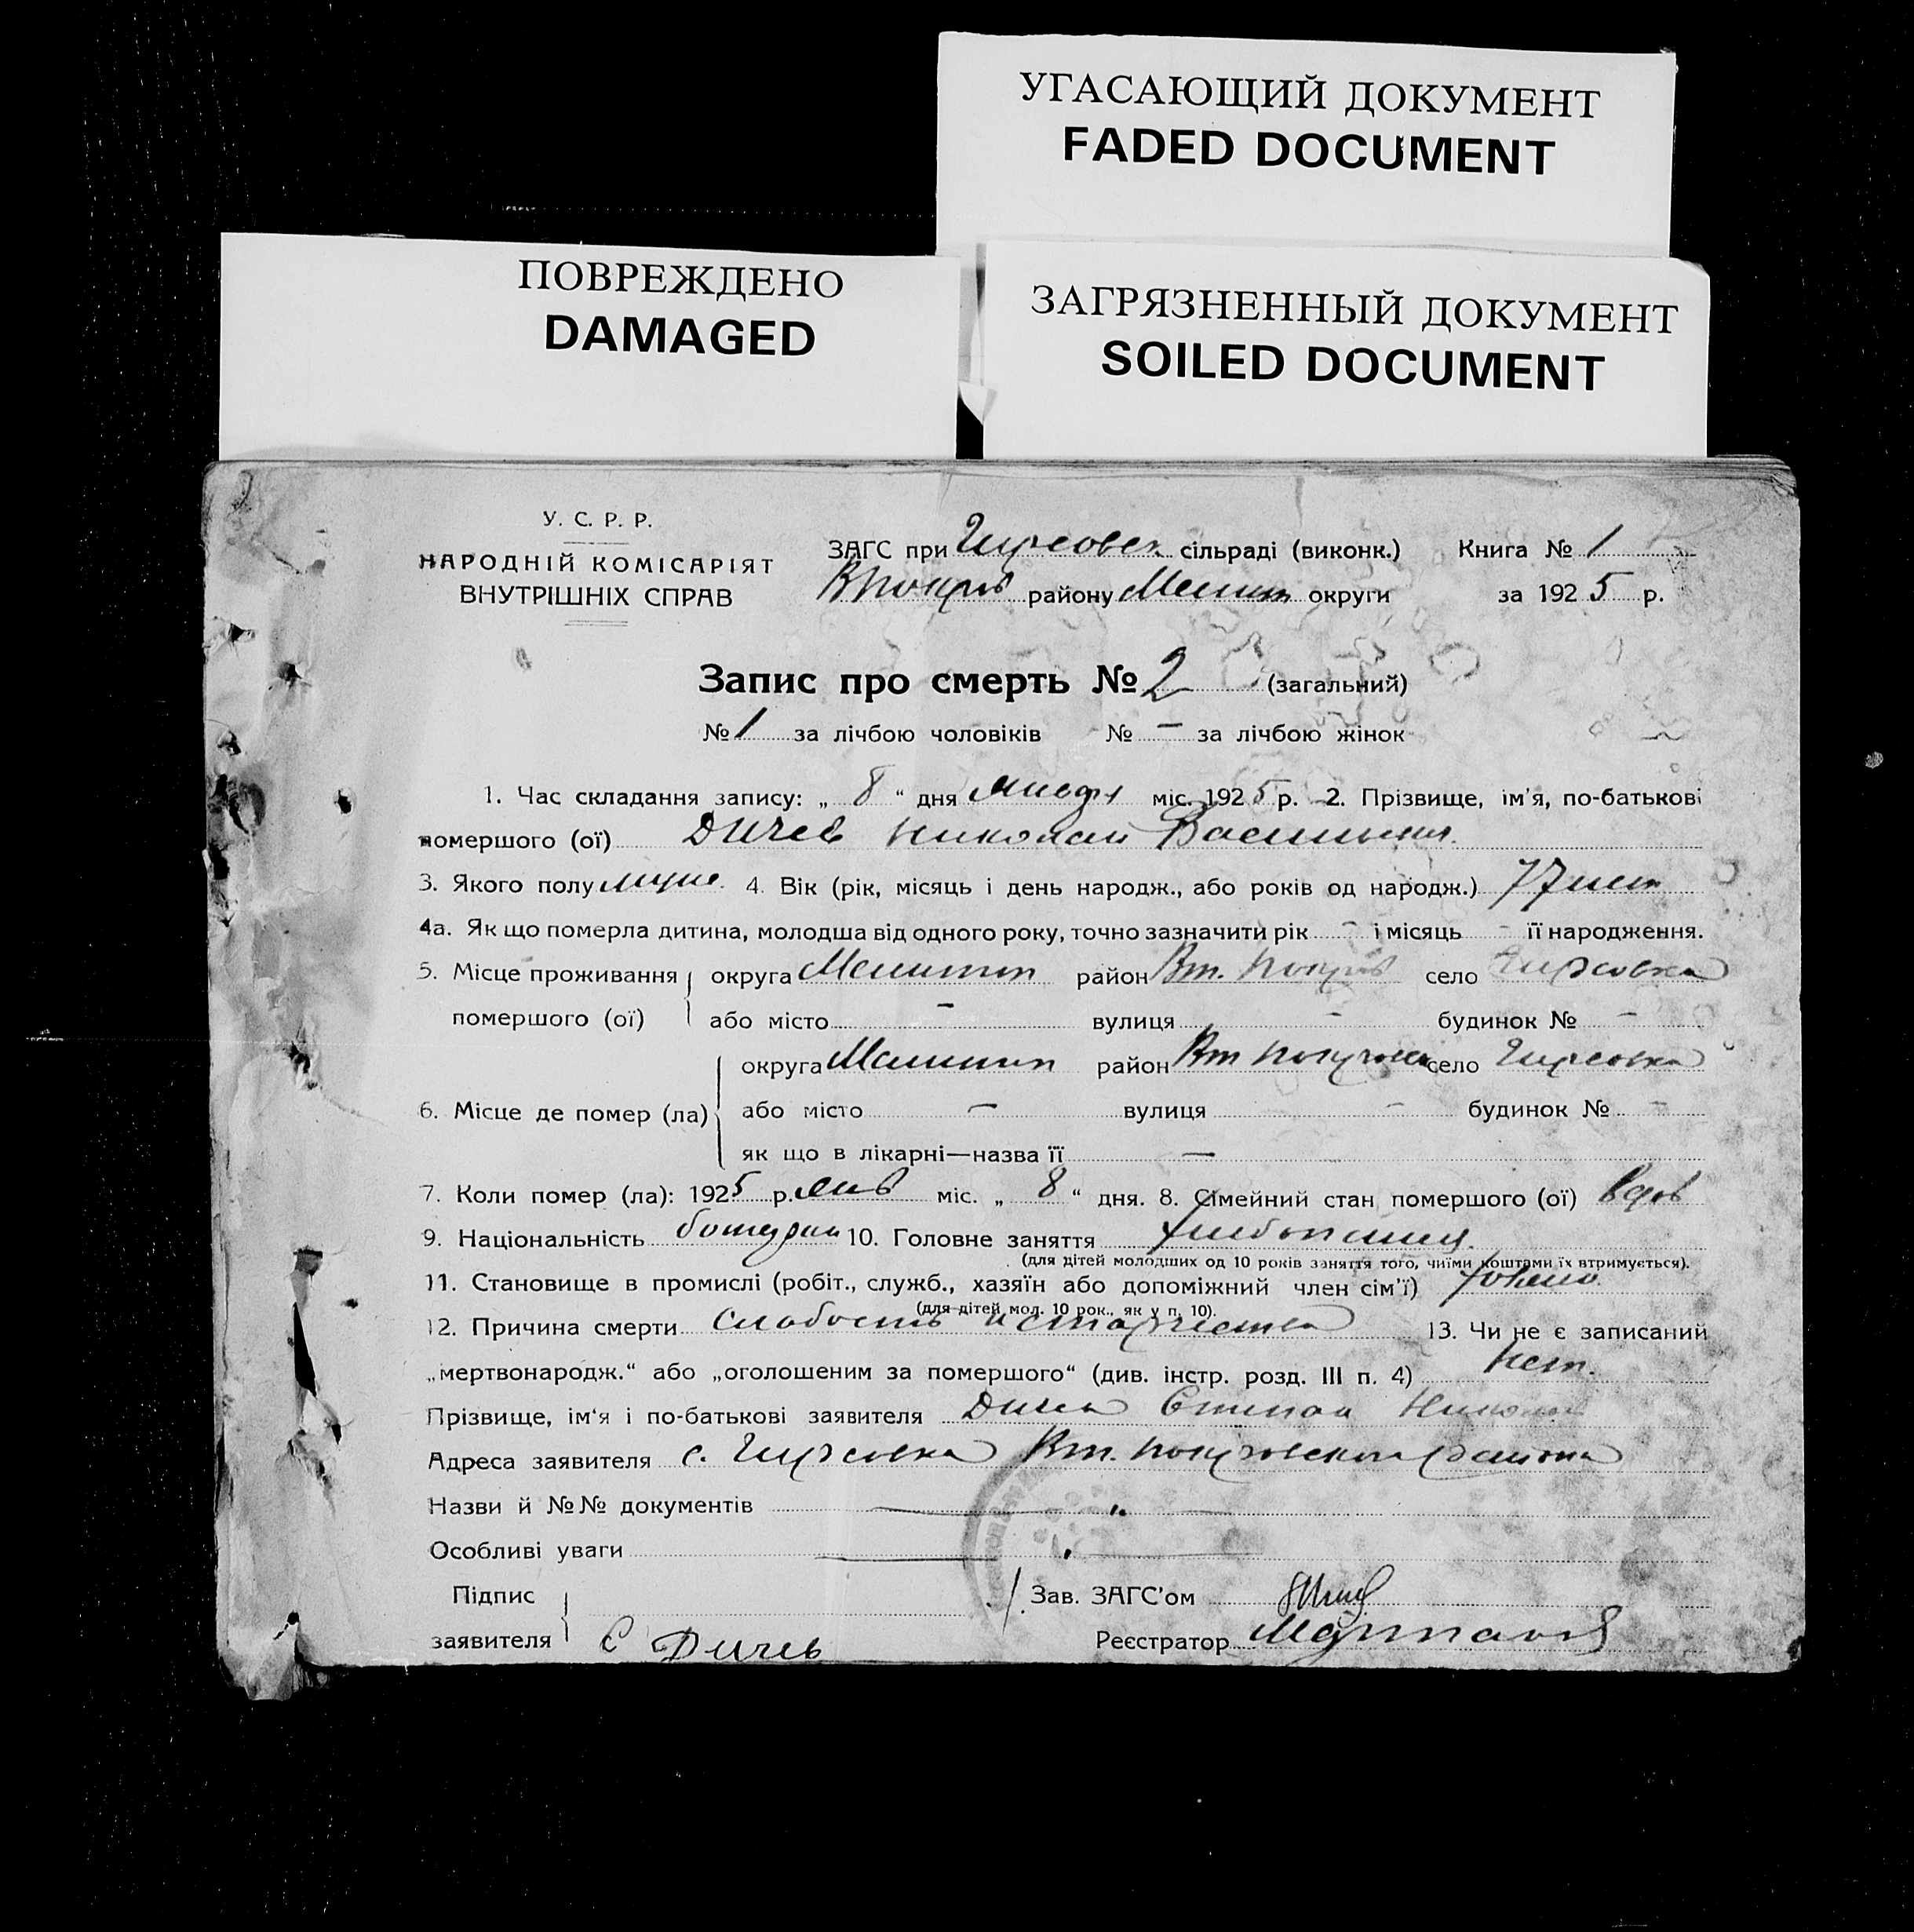 УГАСАЮЩИЙ ДОКУМЕНТ
FADED DOCUMENT
ПОВРЕЖДЕНО
DAMAGED
ЗАГРЯЗНЕННЫЙ ДОКУМЕНТ
SOILED DOCUMENT
У. С. Р. Р.
НАРОДНІЙ КОМІСАРІЯТ
ВНУТРІШНІХ СПРАВ
ЗАГС при Гирсовск сільраді (виконк.) Книга № 1
району Мелит округи за 1925 р.
Запис про смерть № 2 (загальний)
№ 1 за лічбою чоловіків № — за лічбою жінок
1. Час складання запису: „ 8 “ дня января міс. 1925 р. 2. Прізвище, ім'я, по-батькові
помершого (ої) Дичев Николай Васильев.
3. Якого полу муже. 4. Вік (рік, місяць і день народж., або років од народж.) 77 лет
4а. Як що померла дитина, молодша від одного року, точно зазначити рік - і місяць - її народження.
5. Місце проживання округа Мелитоп район Вт. Покров село Гирсовка
помершого (ої) або місто — вулиця - будинок № -
округа Мелитоп район Вт Покровск село Гирсовка
6. Місце де помер (ла) або місто — вулиця - будинок № -
як що в лікарні—назва її —
7. Коли помер (ла): 1925 р. янв міс. „ 8 “ дня. 8. Сімейний стан помершого (ої) вдов
9. Національність болгарин 10. Головне заняття хлебопашец.
(для дітей молодших од 10 років заняття того, чиїми коштами їх втримується).
11. Становище в промислі (робіт., служб., хазяїн або допоміжний член сім'ї) хозяин
(для дітей мол. 10 рок., як у п. 10).
12. Причина смерти Слабость и старчества 13. Чи не є записаний
„мертвонародж.“ або „оголошеним за помершого“ (див. інстр. розд. III п. 4) нет.
Прізвище, ім'я і по-батькові заявителя Дичев Степан Никола
Адреса заявителя с. Гирсовка Вт. Покровского района
Назви й №№ документів — „
Особливі уваги —
Підпис Зав. ЗАГС'ом
заявителя С Дичев Реєстратор